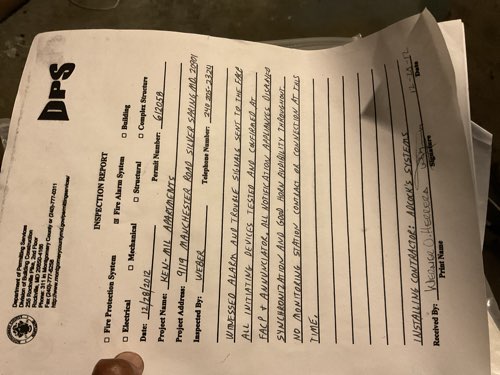 DPS
Department of Permitting Services
Division of Building Construction
255 Rockville Pike, 2nd Floor
Rockville, MD 20850-4166
Phone: 311 in Montgomery County or (240)-777-0311
Fax (240)-777-6241
INSPECTION REPORT
☐ Fire Protection System ☒ Fire Alarm System ☐ Building
☐ Electrical ☐ Mechanical ☐ Structural ☐ Complex Structure
Date: 12/28/2012 Permit Number: 612058
Project Name: KEN-MIL APARTMENTS
Project Address: 9119 MANCHESTER ROAD SILVER SPRING, MD. 20901
Inspected By: WEBER Telephone Number: 240-205-2324
WITNESSED ALARM AND TROUBLE SIGNALS SENT TO THE FACP
ALL INITIATING DEVICES TESTED AND CONFIRMED AT
FACP & ANNUNCIATOR. ALL NOTIFICATION APPLIANCES
SYNCHRONIZATION AND GOOD HORN AUDIBILITY THROUGHOUT
NO MONITORING STATION CONTACT OR CONNECTION AT THIS
TIME.
INSTALLING CONTRACTOR: SYSTEMS
Received By:
Print Name Signature Date